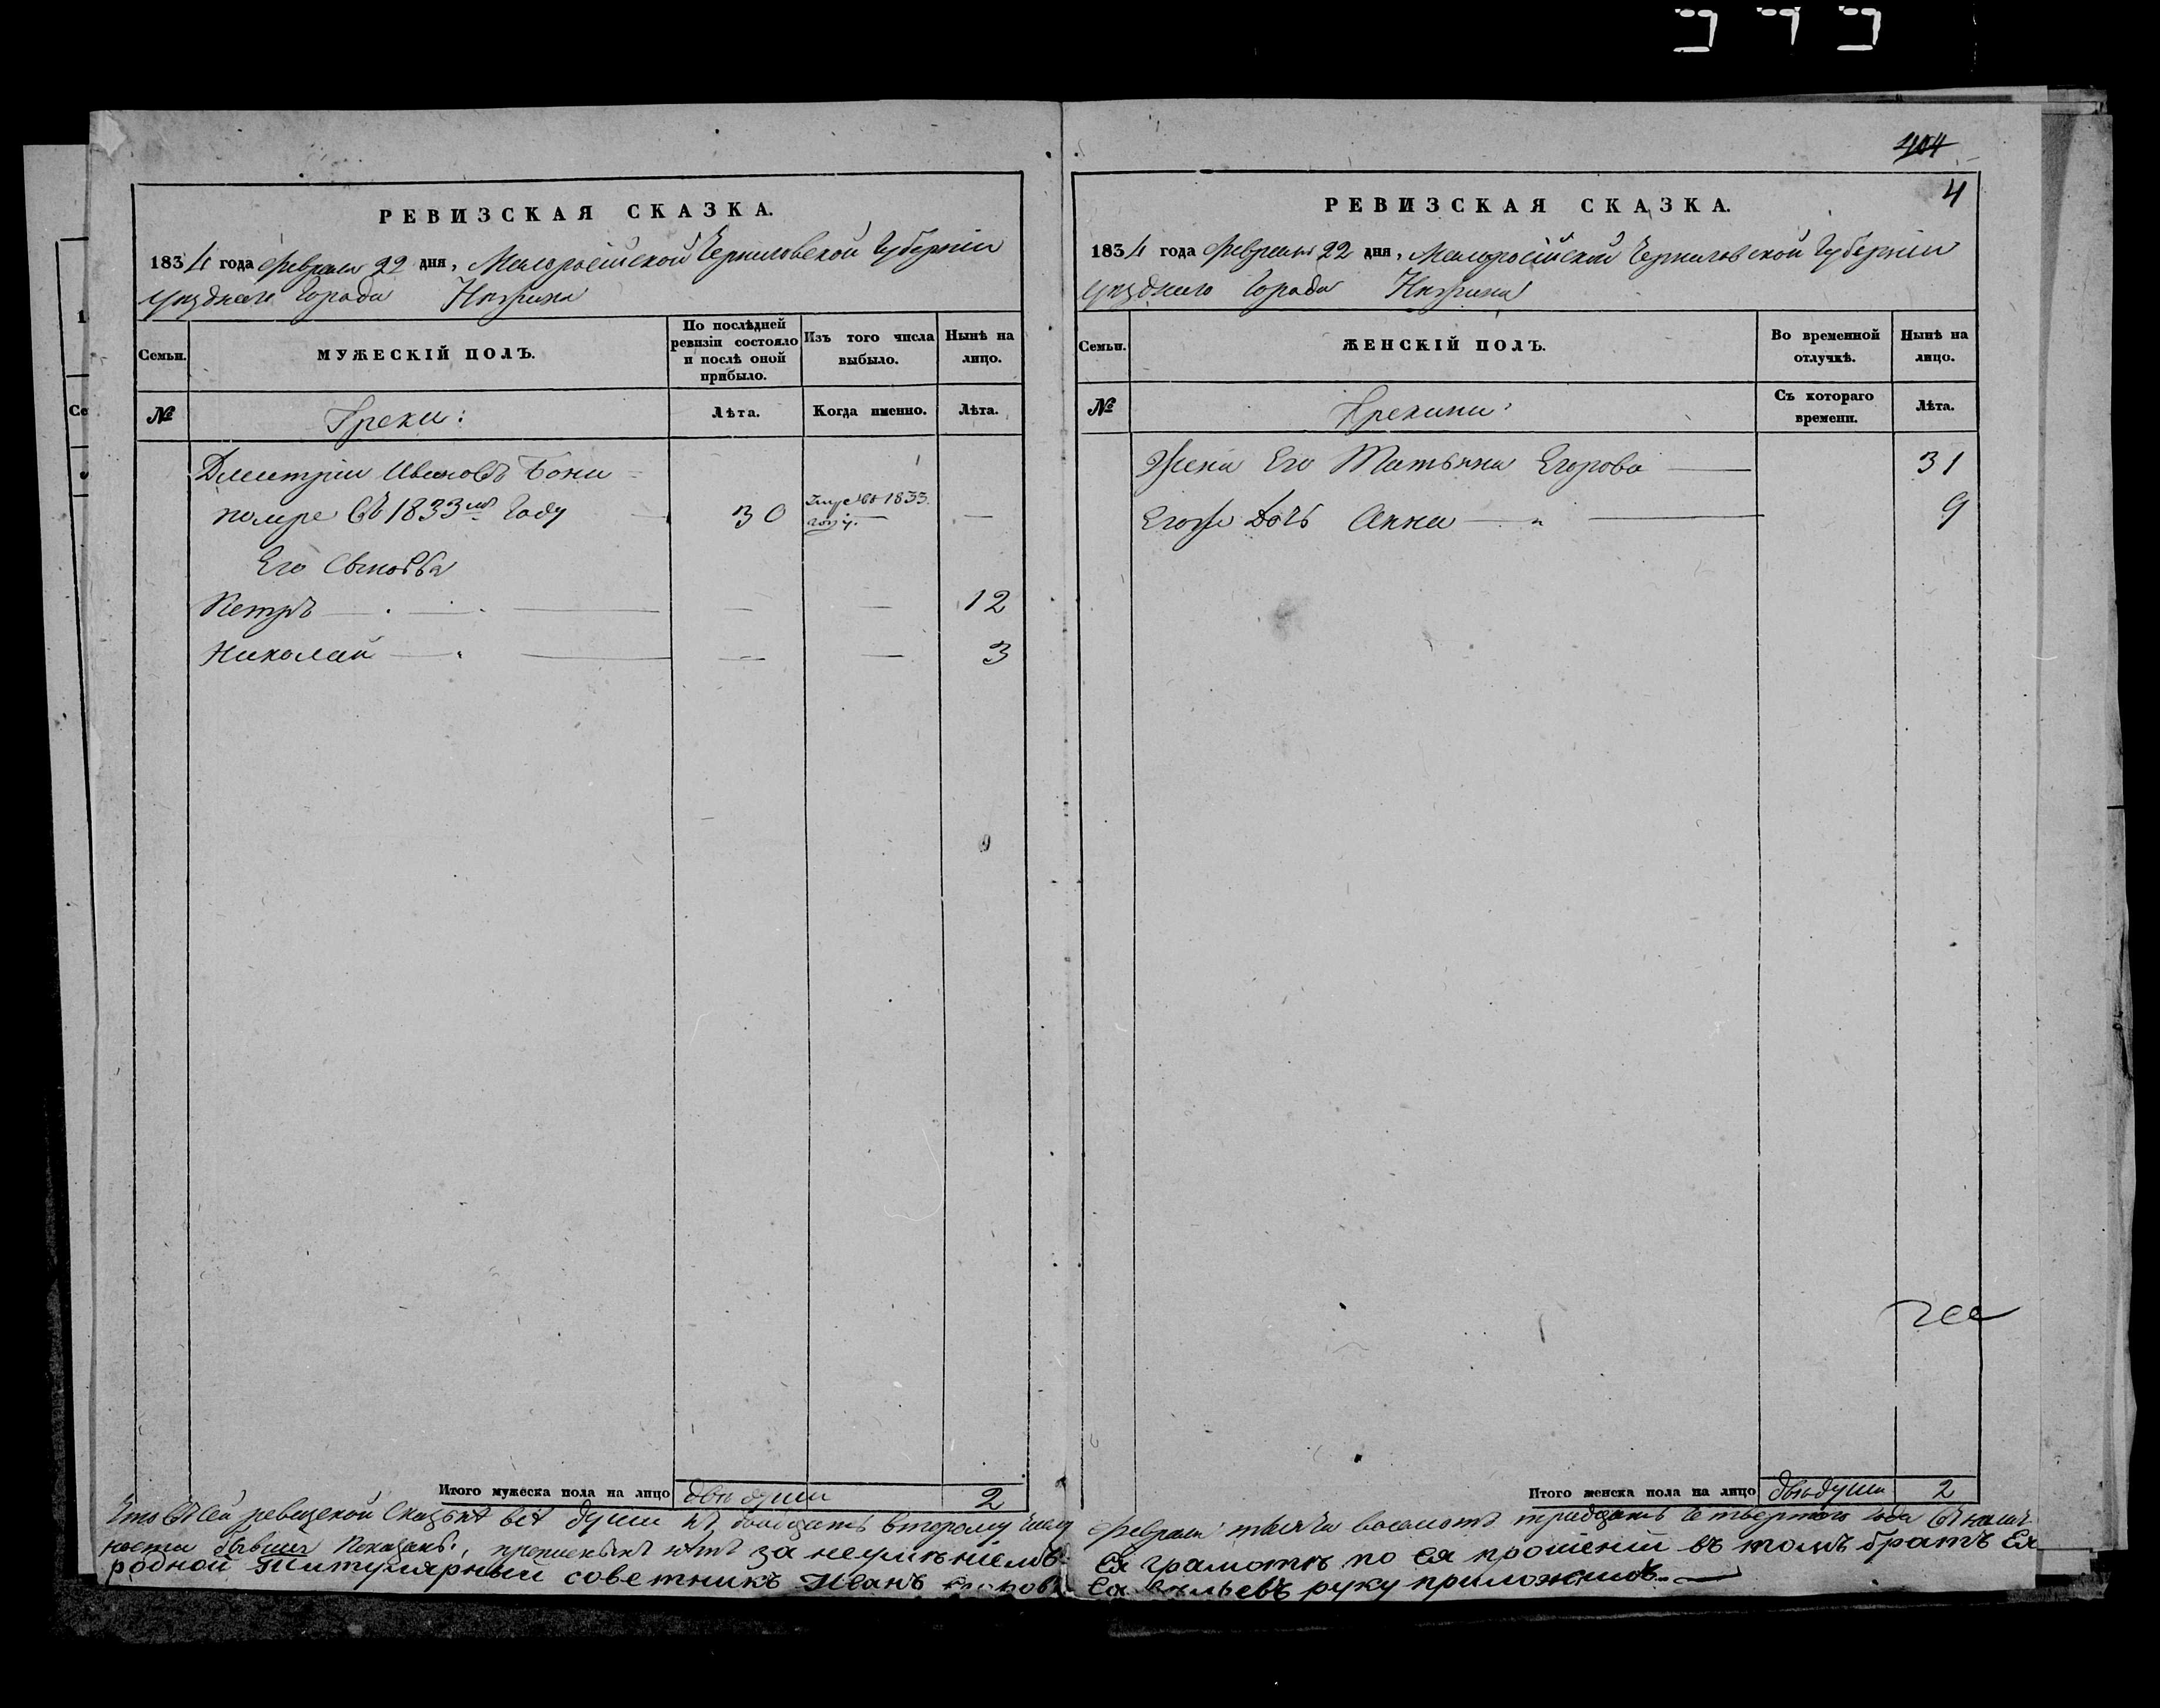 404
РЕВИЗСКАЯ СКАЗКА.
1834 года Февраля 22 дня, Малоросійской Черниговской Губерніи
уѣзднаго Города Нѣжина
Семьи.
МУЖЕСКІЙ ПОЛЪ.
По послѣдней ревизіи состояло и послѣ оной прибыло.
Изъ того числа выбыло.
Нынѣ на лицо.
№
Греки:
Лѣта.
Когда именно.
Лѣта.
Дмитрій Ивановъ Бони
помре въ 1833мъ Году 30 1833 году. —
Его Сыновья
Петръ — — — 12
Николай — — — 3
Итого мужеска пола на лицо двѣ души 2
4
РЕВИЗСКАЯ СКАЗКА.
1834 года Февраля 22 дня, Малоросійской Черниговской Губерніи
уѣзднаго Города Нѣжина
Семьи.
ЖЕНСКІЙ ПОЛЪ.
Во временной отлучкѣ.
Нынѣ на лицо.
№
Грекини:
Съ котораго времени.
Лѣта.
Жена Его Татьяна Егорова — 31
Егожъ Дочь Анна — 9
Итого женска пола на лицо двѣ души 2
Что въ сей ревизской Сказкѣ всѣ души къ двадцать второму числу Февраля тысяча восемотъ тридцать четвертого года въ налич
ности бывшія показаны, за неумѣніемъ Ея грамотѣ по Ея прошеніи въ томъ братъ Ея
родной Титулярный советникъ Иванъ руку приложилъ.